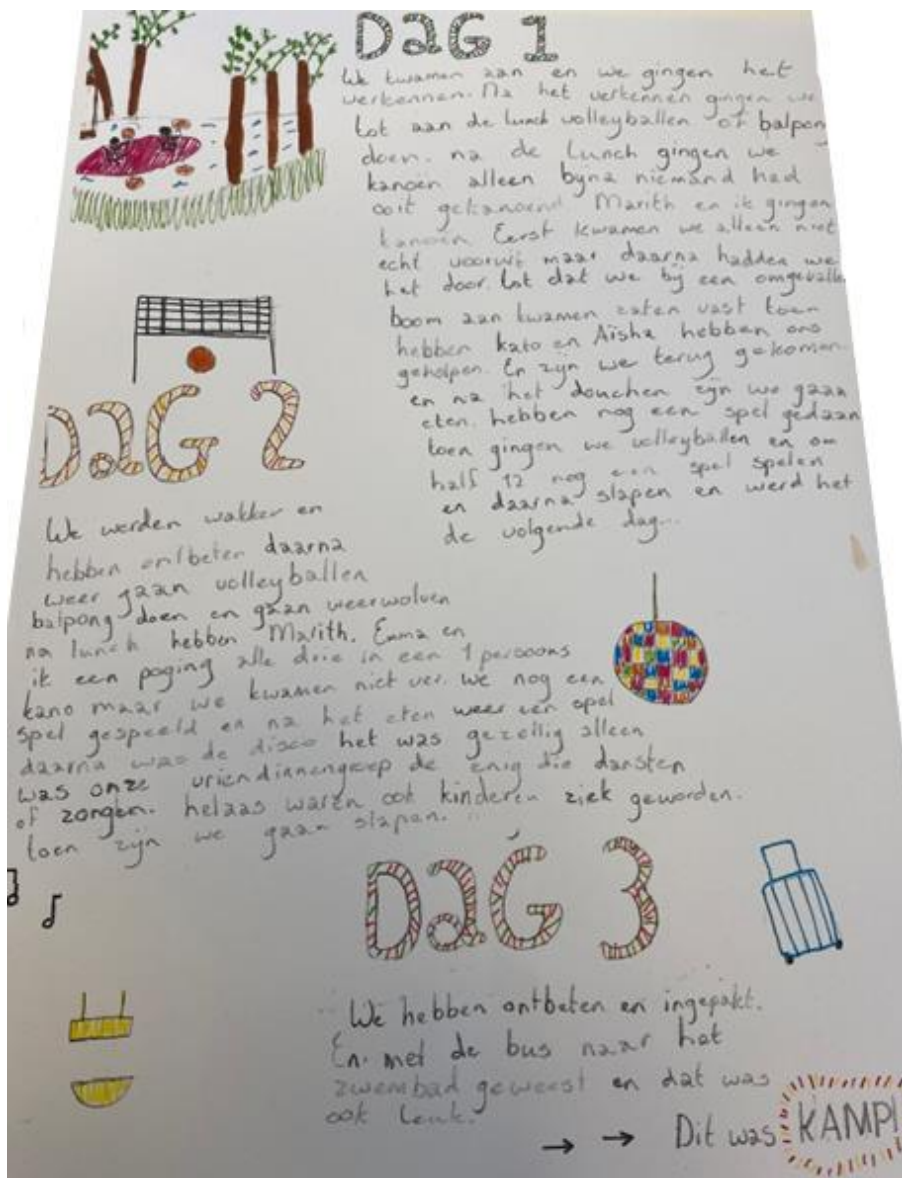 DaG 1
We kwamen aan en we gingen het
verkennen. Na het verkennen gingen we
tot aan de lunch volleyballen of balpon
doen. na de lunch gingen we
kanoën alleen byna niemand had
ooit gekanoend Marith en ik gingen
kanoën Eerst kwamen we alleen niet
echt vooruit maar daarna hadden we
het door. tot dat we bij een omgevalle
boom aan kwamen zaten vast toen
hebben kato en Aïsha hebben ons
geholpen. En zijn we terug gekomen
en na het douchen zijn we gaan
eten. hebben nog een spel gedaan
toen gingen we volleyballen en om
half 12 nog een spel spelen
en daarna slapen en werd het
de volgende dag...
DaG 2
We werden wakker en
hebben ontbeten daarna
weer gaan volleyballen
balpong doen en gaan weerwolven
na lunch hebben Marith, Emma en
ik een poging alle drie in een 1 persoons
kano maar we kwamen niet ver. we nog een
spel gespeeld en na het eten weer een spel
daarna was de disco het was gezellig alleen
was onze vriendinnengroep de enig die dansten
of zongen. helaas waren ook kinderen ziek geworden.
toen zijn we gaan slapen...
DaG 3
We hebben ontbeten en ingepakt.
En met de bus naar het
zwembad geweest en dat was
ook leuk.
→ → Dit was KAMP!